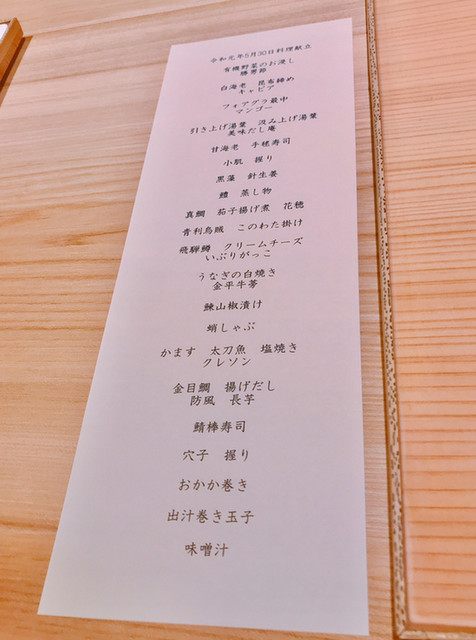 令和元年5月30日料理献立
有機野菜のお浸し
勝男節
白海老　昆布締め
キャビア
フォアグラ最中
マンゴー
引き上げ湯葉　汲み上げ湯葉
美味だし庵
甘海老　手毬寿司
小肌　握り
黒藻　針生姜
鱧　蒸し物
真鯛　茄子揚げ煮　花穂
青利烏賊　このわた掛け
飛騨鱒　クリームチーズ
いぶりがっこ
うなぎの白焼き
金平牛蒡
鰊山椒漬け
蛸しゃぶ
かます　太刀魚　塩焼き
クレソン
金目鯛　揚げだし
防風　長芋
鯖棒寿司
穴子　握り
おかか巻き
出汁巻き玉子
味噌汁